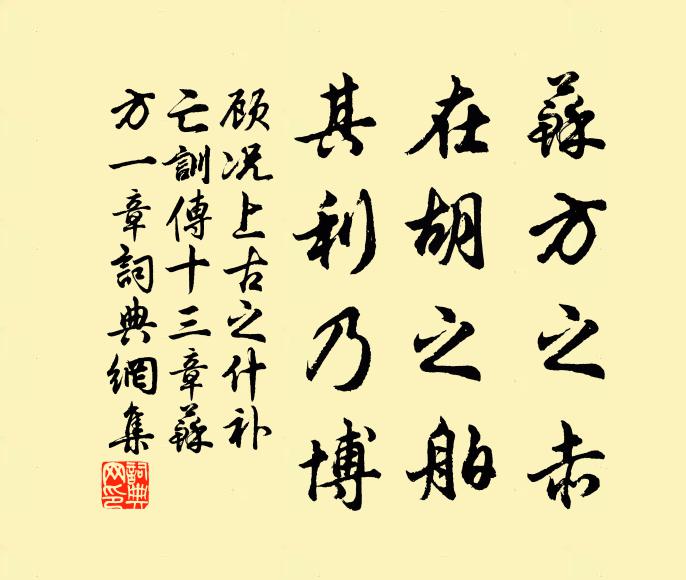 蘇方之赤
在胡之舶
其利乃博
顾况上古之什补
亡訓傳十三章蘇
方一章詞典網集
詞典
网印